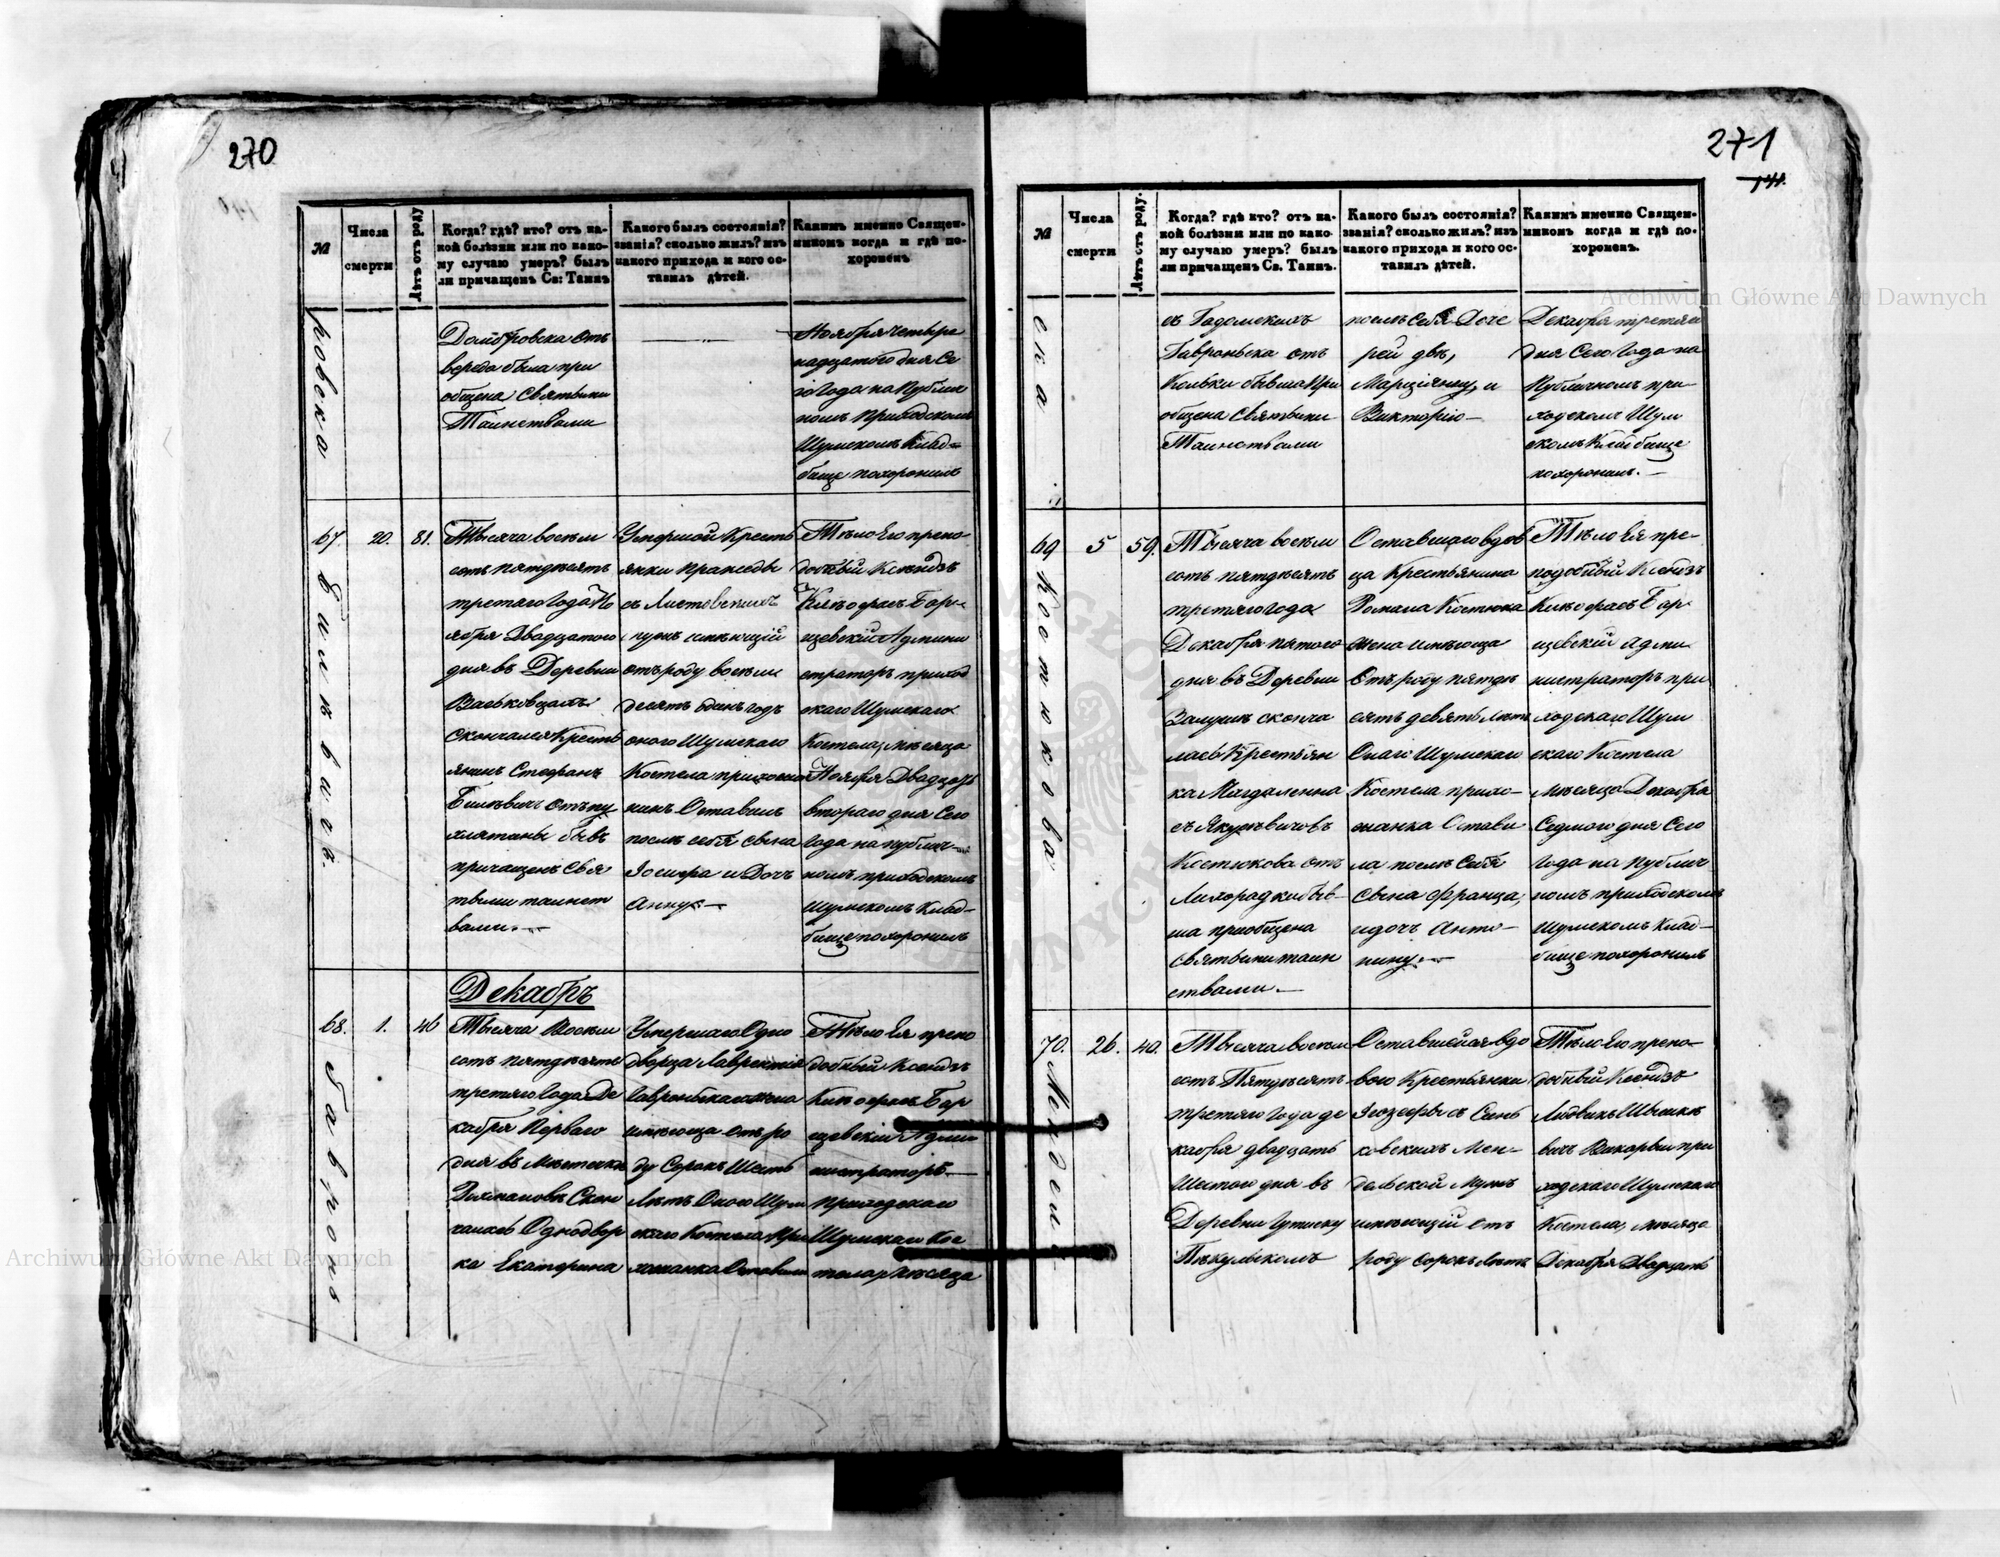 270
№
Числа смерти
Лѣтъ отъ роду
Когда? гдѣ? кто? отъ ка-
кой болѣзни или по како-
му случаю умеръ? былъ
ли причащенъ Св: Таинъ
Какого былъ состоянія?
званія? сколько жилъ? изъ
какого прихода и кого ос-
тавилъ дѣтей.
Какимъ именно Священ-
никомъ когда и гдѣ по-
хороненъ
ровска
Домбровска отъ
вереда была при
общена Святыми
Таинствами
Ноября четыре
надцатого дня Се
го Года на Публич
номъ Приходскомъ
Шумскомъ Клад-
бище похоронилъ
67.
20.
81.
Билѣвичъ.
Тысяча восемъ
сотъ пятдесятъ
третяго Года Но
ября Двадцатого
дня въ Деревни
Васьковцахъ
скончался Кресть
янинъ Стефанъ
Билѣвичъ отъ пу
хлятины бывъ
причащенъ Свя
тыми таинст
вами.
Умершой Кресть
янки Праксeды
съ Листовскихъ
мужъ имѣющій
отъ роду восемъ
десятъ одинъ годъ
оного Шумскаго
Костела прихожа
нинъ Оставилъ
послѣ себя сына
Іосифа и Дочь
Анну
Тѣло Его препо
добный Ксендзъ
Никифоръ Бор-
щевскій Админи
страторъ приход
скаго Шумскаго
Костела, мѣсяца
Ноября Двадцать
втораго дня Сего
года на публич-
номъ приходскомъ
Шумскомъ Клад-
бище похоронилъ
Декабрь
68.
1.
46
Гавронь
Тысяча Восемъ
сотъ пятдесятъ
третяго Года Де
кабря Перваго
дня въ Мѣстечки
Рахмановѣ Скон
чалась Однодвор
ка Екатерина
Умершаго Одно
дворца Лаврентія
Гавроньскаго жена
имѣюща отъ ро
ду Сорокъ Шесть
Лѣтъ Оного Шум
скаго Костела При
хожанка Оставила
Тѣло Ея препо
добный Ксендзъ
Никифоръ Бор
щевскій Адми
нистраторъ
Приходскаго
Шумскаго Кос
тела, Мѣсяца
271
141.
№
Числа смерти
Лѣтъ отъ роду.
Когда? гдѣ кто? отъ ка-
кой болѣзни или по како-
му случаю умеръ? былъ
ли причащенъ Св. Таинъ.
Какого былъ состоянія?
званія? сколько жилъ? изъ
какого прихода и кого ос-
тавилъ дѣтей.
Какимъ именно Священ-
никомъ когда и гдѣ по-
хороненъ.
ска
съ Гадомскихъ
Гавроньска отъ
Кольки бывша При
общена Святыми
Таинствами
послѣ себя Доче
рей двѣ,
Марціянну, и
Викторію
Декабря третяго
дня Сего Года на
Публичномъ при-
ходскомъ Шум
скомъ Кладбище
похоронилъ.
69
5
59.
Костюкова
Тысяча восемъ
сотъ пятдесятъ
третяго года
Декабря пятого
дня въ Деревни
скончa
лась Крестьян
ка Магдаленна
съ Якубѣвичовъ
Костюкова отъ
Лихорадки быв-
ша приобщена
святыми таин
ствами.
Оставшаго вдов
ца Крестьянина
Романа Костюка
жена имѣюща
Отъ роду пятде
сятъ девять лѣтъ
Онаго Шумскаго
Костела прихо-
жанка Остави
ла послѣ Себя
Сына Франца,
и дочь Анто-
нину.
Тѣло Ея пре-
подобный Ксендзъ
Никифоръ Бор-
щевскій Адми
нистраторъ при
ходскаго Шум
скаго Костела
Мѣсяца Декабря
Седмого дня Сего
года на Публич
номъ приходскомъ
Шумскомъ Клад-
бище похоронилъ
70.
26.
40.
Мендел
Тысяча восемъ
сотъ Пятдесятъ
третяго Года де
кабря двадцать
Шестого дня въ
Деревни Гутиску
Оставшейся вдо
вою Крестьянки
Іозефы съ Синь
ковскихъ Мен-
дельской Мужъ
имѣющій отъ
роду сорокъ лѣтъ
Тѣло Его препо-
добный Ксендзъ
Людвикъ
вичъ Викарый при
ходскаго Шумскаго
Костела, Мѣсяца
Декабря Двадцать
Archiwum Główne Akt Dawnych
Archiwum Główne Akt Dawnych